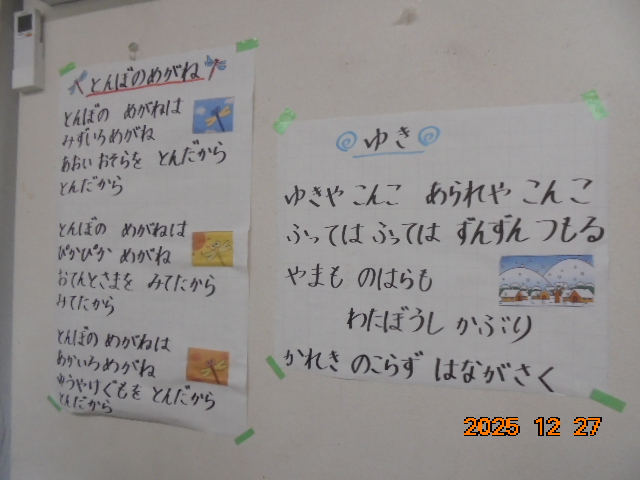 とんぼのめがね
とんぼの めがねは
みずいろめがね
あおい おそらを とんだから
とんだから
とんぼの めがねは
ぴかぴか めがね
おてんとさまを みてたから
みてたから
とんぼの めがねは
あかいろめがね
ゆうやけぐもを とんだから
とんだから
ゆき
ゆきや こんこ あられや こんこ
ふっては ふっては ずんずん つもる
やまも のはらも
わたぼうし かぶり
かれき のこらず はながさく
2025 12 27